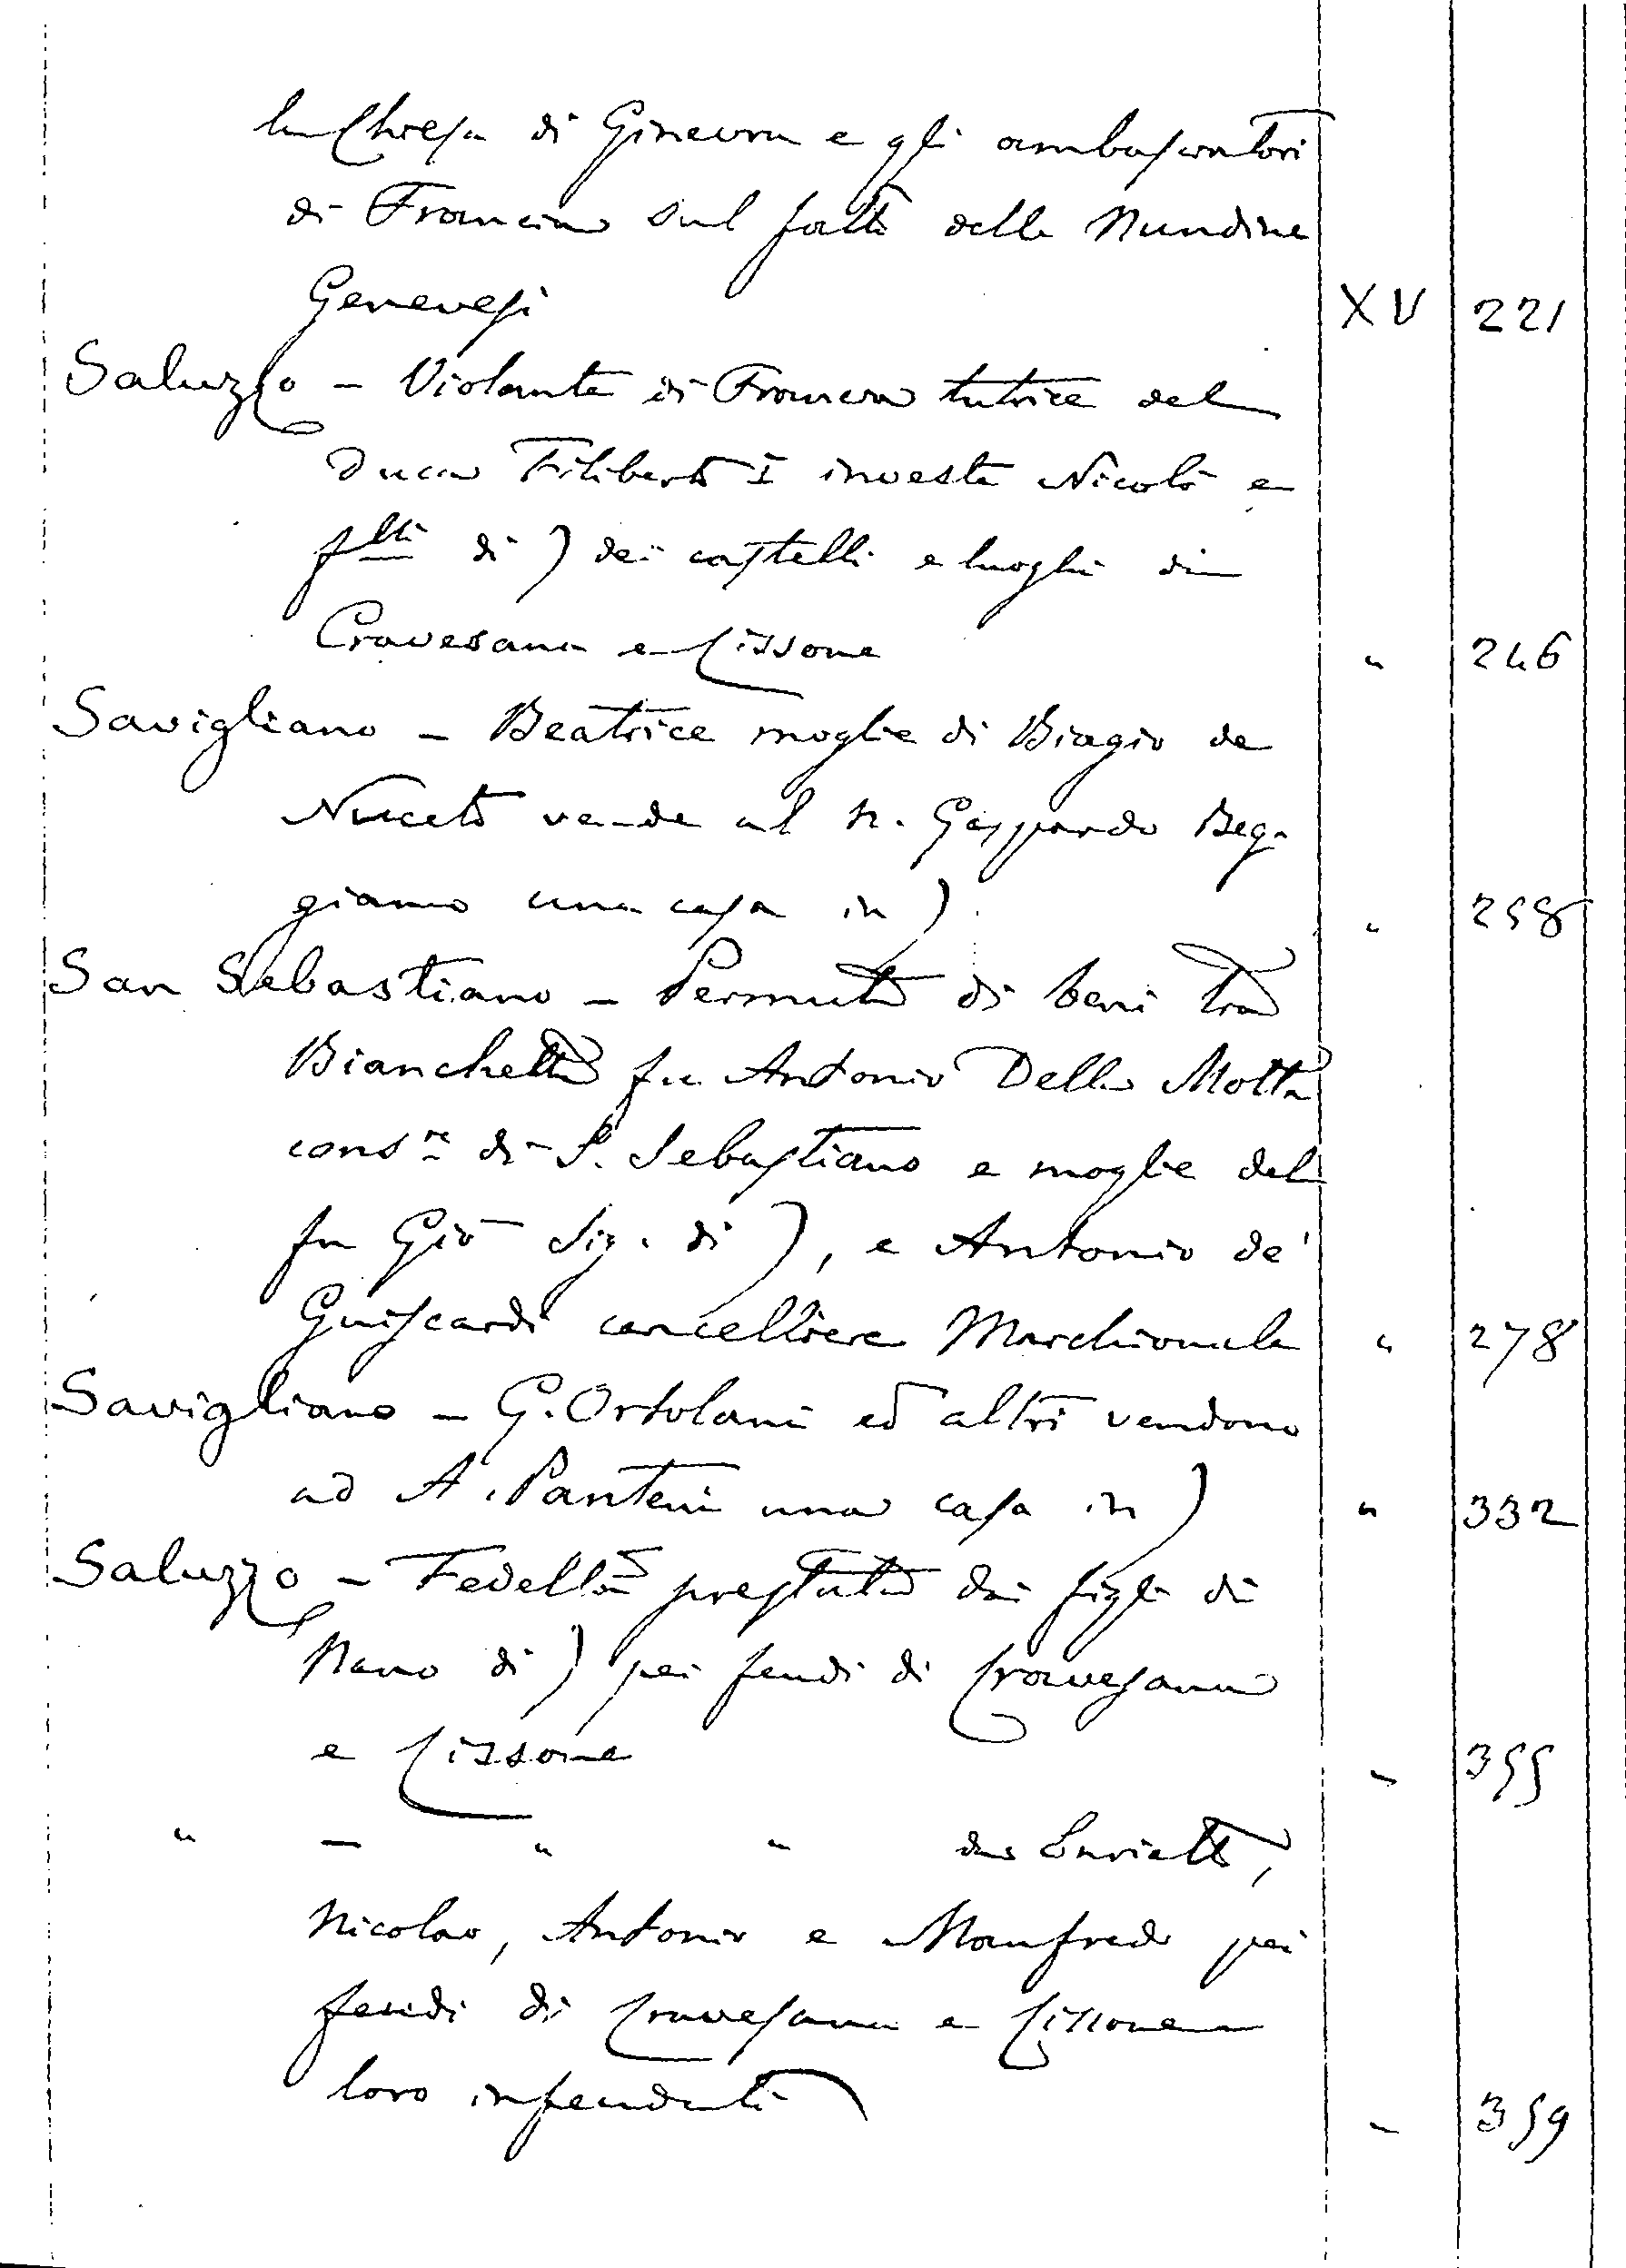 la Chiesa di Ginevra e gli ambasciatori
di Francia sul fatto delle Nundine
Genevesi XV 221
Saluzzo - Violante di Francia tutrice del
Duca Filiberto I investe Nicolò e
flli di ) dei castelli e luoghi di
Cravesana e Cissone " 246
Savigliano - Beatrice moglie di Biagio de
Nuceto vende al n. Gaspardo Beg-
giamo una casa in ) " 258
San Sebastiano - Permuta di beni tra
Bianchetta fu Antonio Della Motta
consre di S. Sebastiano e moglie del
fu Gio Sig. di ), e Antonio de'
Guiscardi cancelliere Marchionale " 278
Savigliano - G. Ortolani ed altri vendono
ad A. Panteri una casa in ) " 332
Saluzzo - Fedeltà prestata dai figli di
Nano di ) pei feudi di Cravesana
e Cissone " 355
" - " " da Enrietto,
Nicolao, Antonio e Manfredo pei
feudi di Cravesana e Cissone
loro infeudati " 359